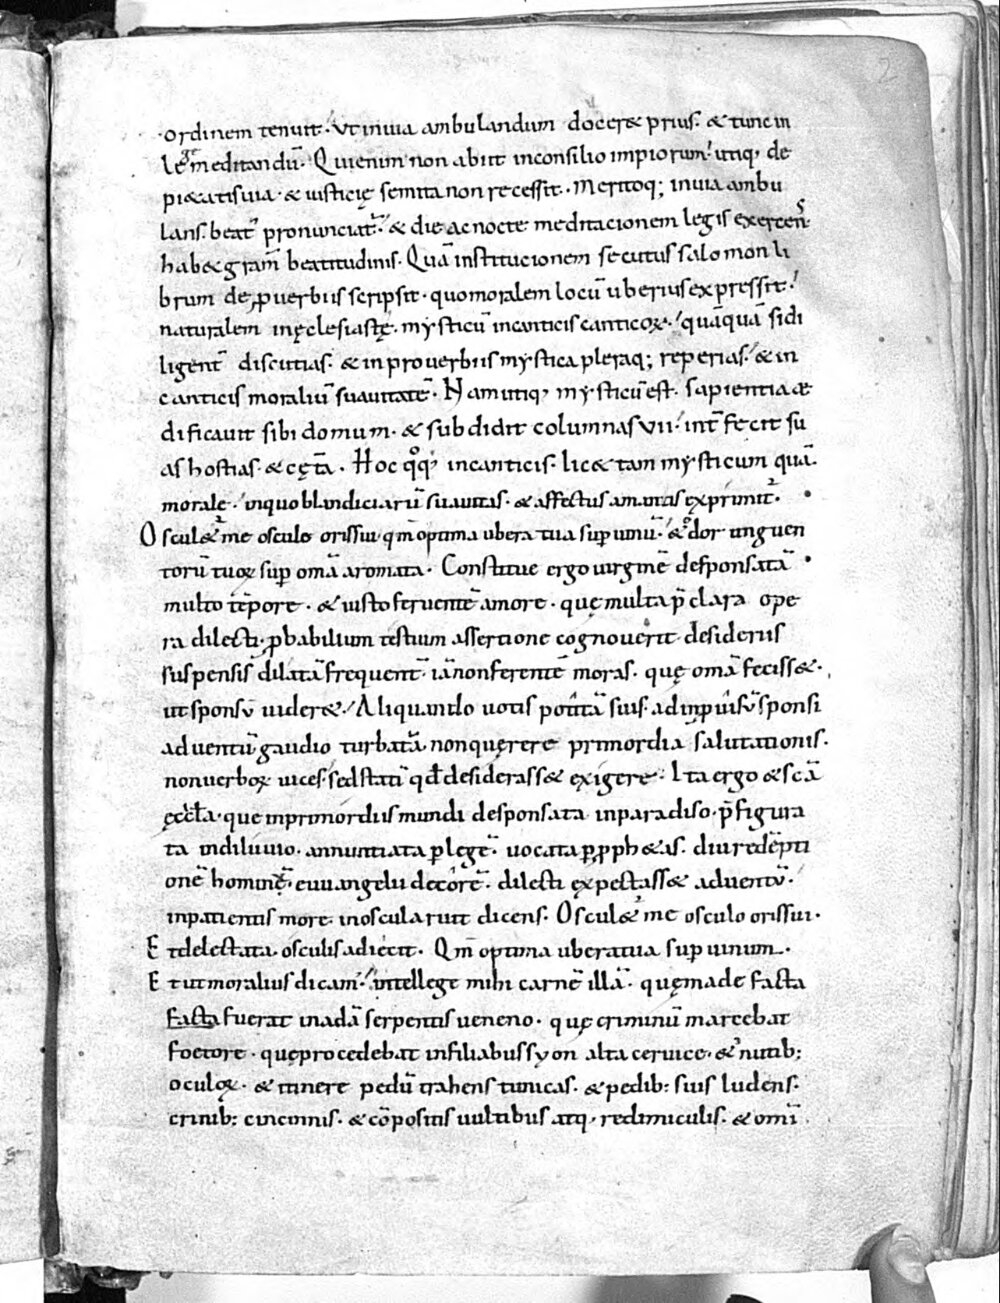 2
ordinem tenuit· Ut inuia ambulandum docer& prius· & tunc in
lege meditandū· Qui enim non abiit inconsilio impiorum· utiq; de
pi&atis uia· & iusticię semita non recessit· Meritoq; inuia ambu
lans· beat᷒ pronunciat᷒· & die ac nocte meditacionem legis exercens
hab& grām beatitudinis· Quā institucionem secutus salomon li
brum de ꝓuerbiis scripsit· quo moralem locū uberius expressit·
naturalem in ęclesiastę· mysticū incanticis canticoꝝ· quāquā si di
ligent̄ discutias· & in prouerbiis mystica pleraq; reperias· & in
canticis moraliū suauitatē· Nam utiq; mysticū est· sapientia æ
dificauit sibi domum· & subdidit columnas VII· int̄fecit su
as hostias· & cęt̄a· Hoc qͦq; incanticis· lic& tam mysticum quā
morale· inquo blandiciarū suauitas· & affectus amantis exprimit᷒·
Oscul&᷒ me osculo oris sui qm̄ optima ubera tua suꝑ uinū· & odor unguen
torū tuoꝝ suꝑ om̄a aromata· Constitue ergo uirginē desponsatā
multo tēpore· & iusto feruentē amore· quę multa p̄clara ope
ra dilecti· ꝓbabilium testium assertione cognouerit· desideriis
suspensis dilatā frequent̄· iā non ferentē moras· quę om̄a feciss&·
ut sponsū uider&· Aliquando uotis potitā suis· ad inꝓuisū sponsi
aduentū gaudio turbatā non quęrere primordia salutationis·
non uerboꝝ uices· sed statī qd̄ desiderass& exigere· Ita ergo & scā
ęccł̄a· que inprimordiis mundi desponsata inparadiso· p̄figura
ta indiluuio· annuntiata ꝑ legē· uocata ꝑ ꝓph&as· diu redēpti
onē hominū· euuangelii decōrē· dilecti expectass& aduentū·
inpatientis more· inoscula ruit dicens· Oscul&᷒ me osculo oris sui·
Et delectata osculis adiecit· Qm̄ optima ubera tua suꝑ uinum·
Et ut moralius dicam· intellege mihi carnē illā· quę made facta
facta fuerat in adā serpentis ueneno· quę criminū marcebat
foetore· quę procedebat infiliabus syon alta ceruice· & nutib;
oculoꝝ· & itinere pedū trahens tunicas· & pedib; suis ludens·
crinib; cincinnis· & cōpositis uultibus atq; redimiculis· & omī